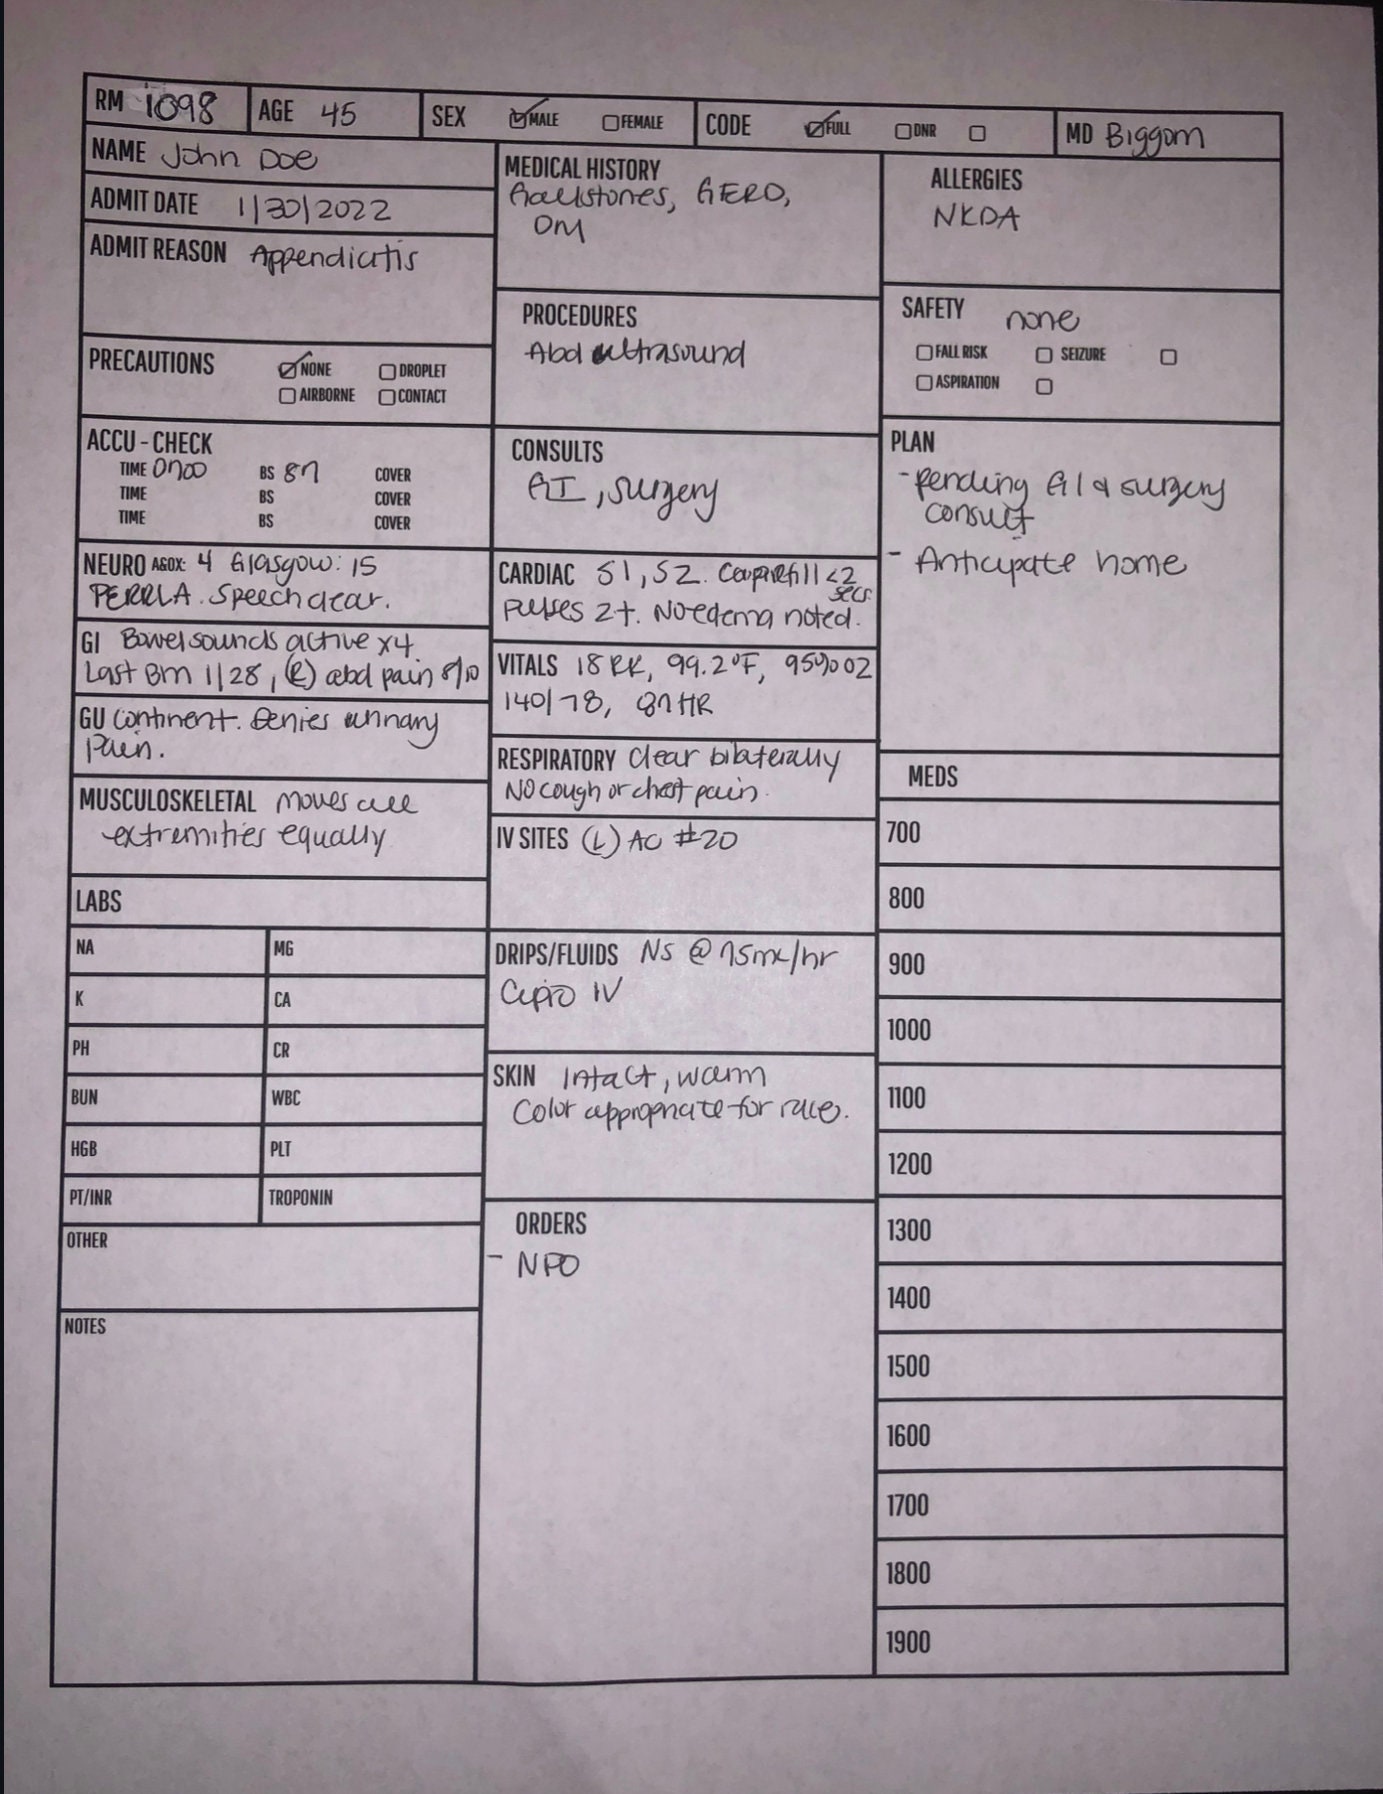 RM 1098 AGE 45 SEX MALE FEMALE CODE FULL DNR MD Biggom
NAME John Doe
ADMIT DATE 1/30/2022
ADMIT REASON Appendicitis
PRECAUTIONS NONE DROPLET
AIRBORNE CONTACT
ACCU-CHECK
TIME 0700 BS 87 COVER
TIME BS COVER
TIME BS COVER
NEURO A&OX: 4 Glasgow: 15
PERRLA. Speech clear.
GI Bowel sounds active x4
Last BM 1/28, (R) abd pain 8/10
GU Continent. Denies urinary
Pain.
MUSCULOSKELETAL moves all
extremities equally
LABS
NA MG
K CA
PH CR
BUN WBC
HGB PLT
PT/INR TROPONIN
OTHER
NOTES
MEDICAL HISTORY
Gallstones, GERD,
DM
PROCEDURES
Abd ultrasound
CONSULTS
GI, surgery
CARDIAC S1, S2. Cap refill <2
secs.
pulses 2+. No edema noted.
VITALS 18 RR, 99.2°F, 95% O2
140/78, 87 HR
RESPIRATORY Clear bilaterally
NO cough or chest pain.
IV SITES (L) AC #20
DRIPS/FLUIDS NS @ 75mL/hr
Cipro IV
SKIN Intact, warm
Color appropriate for race.
ORDERS
- NPO
ALLERGIES
NKDA
SAFETY none
FALL RISK SEIZURE
ASPIRATION
PLAN
- Pending GI & surgery
consult
- Anticipate home
MEDS
700
800
900
1000
1100
1200
1300
1400
1500
1600
1700
1800
1900